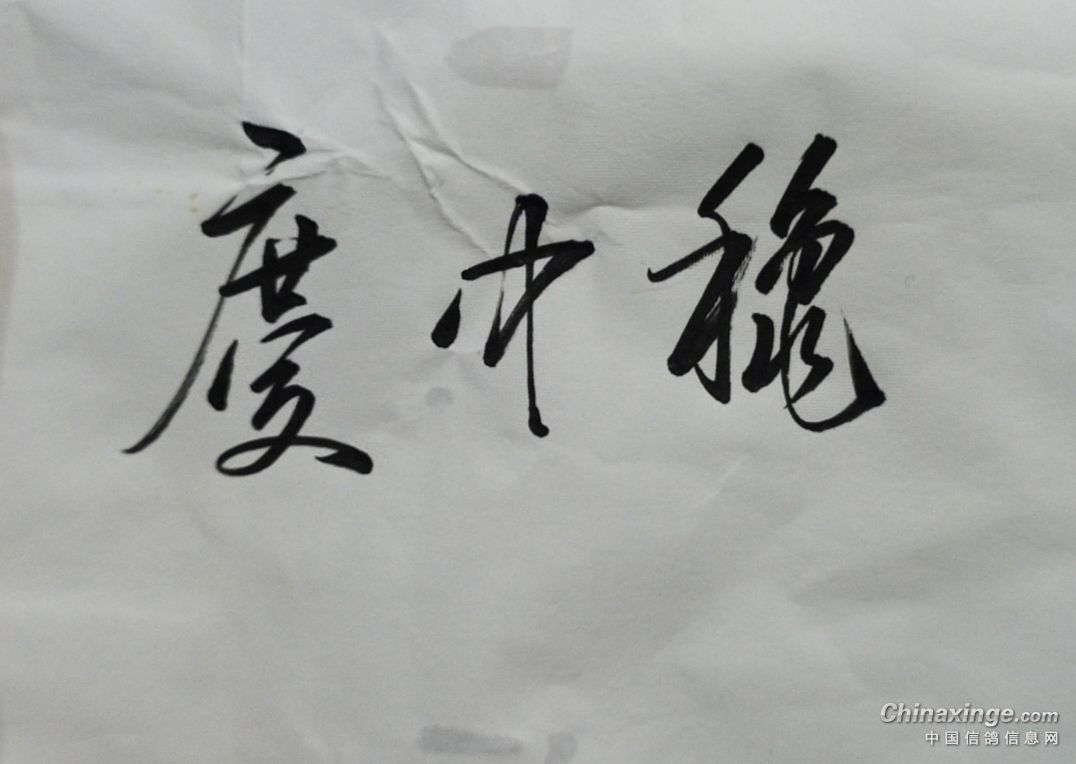 慶中穐
Chinaxinge.com
中国信鸽信息网